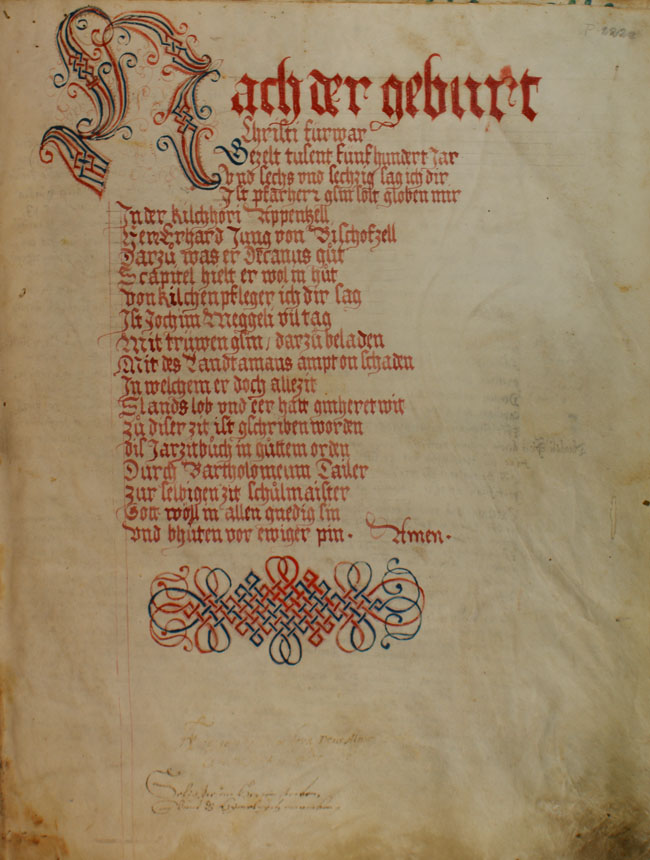 Nach der geburt
Christi fürwar
Gezelt tusent fünfhundert Jar
Und sechs und sechzig sag ich dir
Ist pfarherr gsin solt globen mir
In der kilchhöri Appentzell
Herr Erhard Jung von Bischofzell
Darzů was er Decanus gůt
S capitel hielt er wol in hůt
Von kilchenpfleger ich dir sag
Ist Jochim Meggeli vil tag
Mit trüwen gsin, darzů beladen
Mit des Landtamans ampt on schaden
In welchem er doch allezit
S lands lob und eer hatt gmheret wit
Zů diser zit ist gschriben worden
dis Jarzitbůch in gůttem orden
Durch Bartholomeum Tailer
Zur selbigen zit schůlmaister
Gott wöll in allen gnedig sin
Und bhüten vor ewiger pin. Amen.